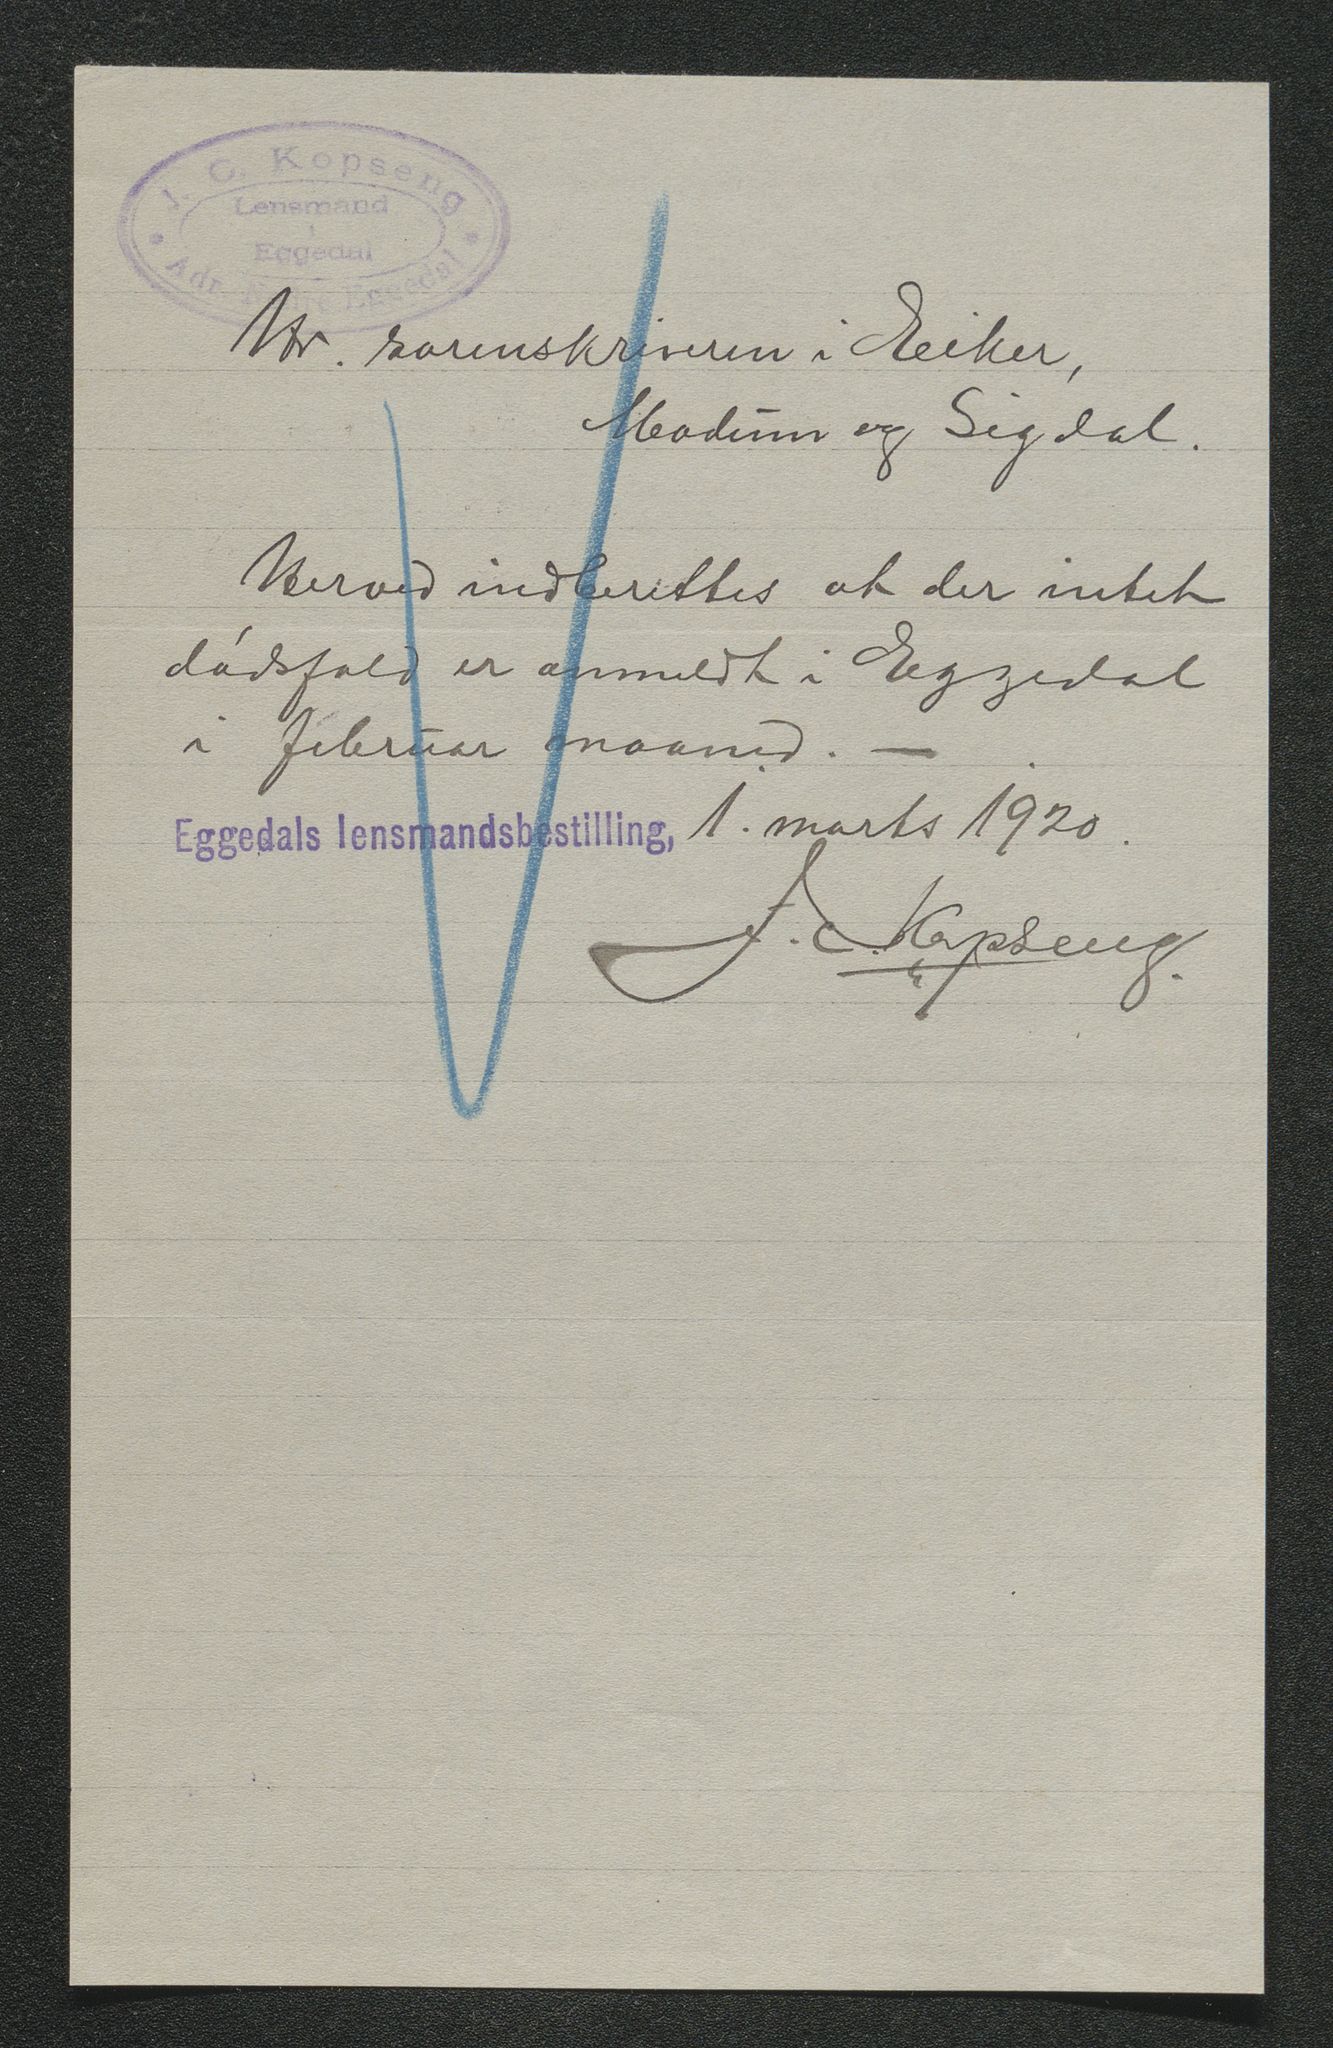 J. C. Kopseng
Lensmand
i
Eggedal
Adr. Nedre Eggedal
Hr. sorenskriveren i Eeiker,
Modum og Sigdal.
Herved indberettes at der intet
dødsfald er anmeldt i Eggedal
i februar maaned. —
Eggedals lensmandsbestilling, 1. marts 1920.
J. C. Kopseng.